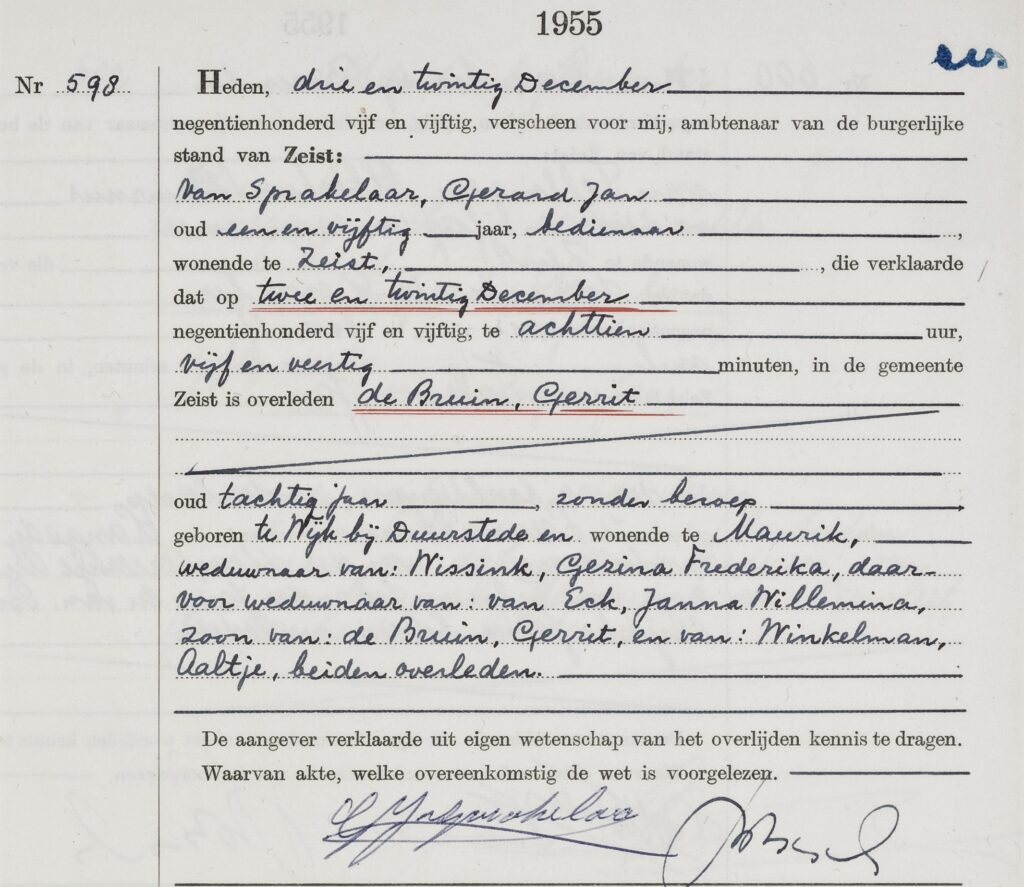 1955
Nr 598
Heden, drie en twintig December
negentienhonderd vijf en vijftig, verscheen voor mij, ambtenaar van de burgerlijke
stand van Zeist:
van Sprakelaar, Gerard Jan
oud een en vijftig jaar, bedienaar ,
wonende te Zeist, , die verklaarde
dat op twee en twintig December
negentienhonderd vijf en vijftig, te achttien uur,
vijf en veertig minuten, in de gemeente
Zeist is overleden de Bruin, Gerrit
oud tachtig jaar , zonder beroep
geboren te Wijk bij Duurstede en wonende te Maurik,
weduwnaar van: Wissink, Gerina Frederika, daar-
voor weduwnaar van: van Eck, Janna Willemina,
zoon van: de Bruin, Gerrit, en van: Winkelman,
Aaltje, beiden overleden.
De aangever verklaarde uit eigen wetenschap van het overlijden kennis te dragen.
Waarvan akte, welke overeenkomstig de wet is voorgelezen.